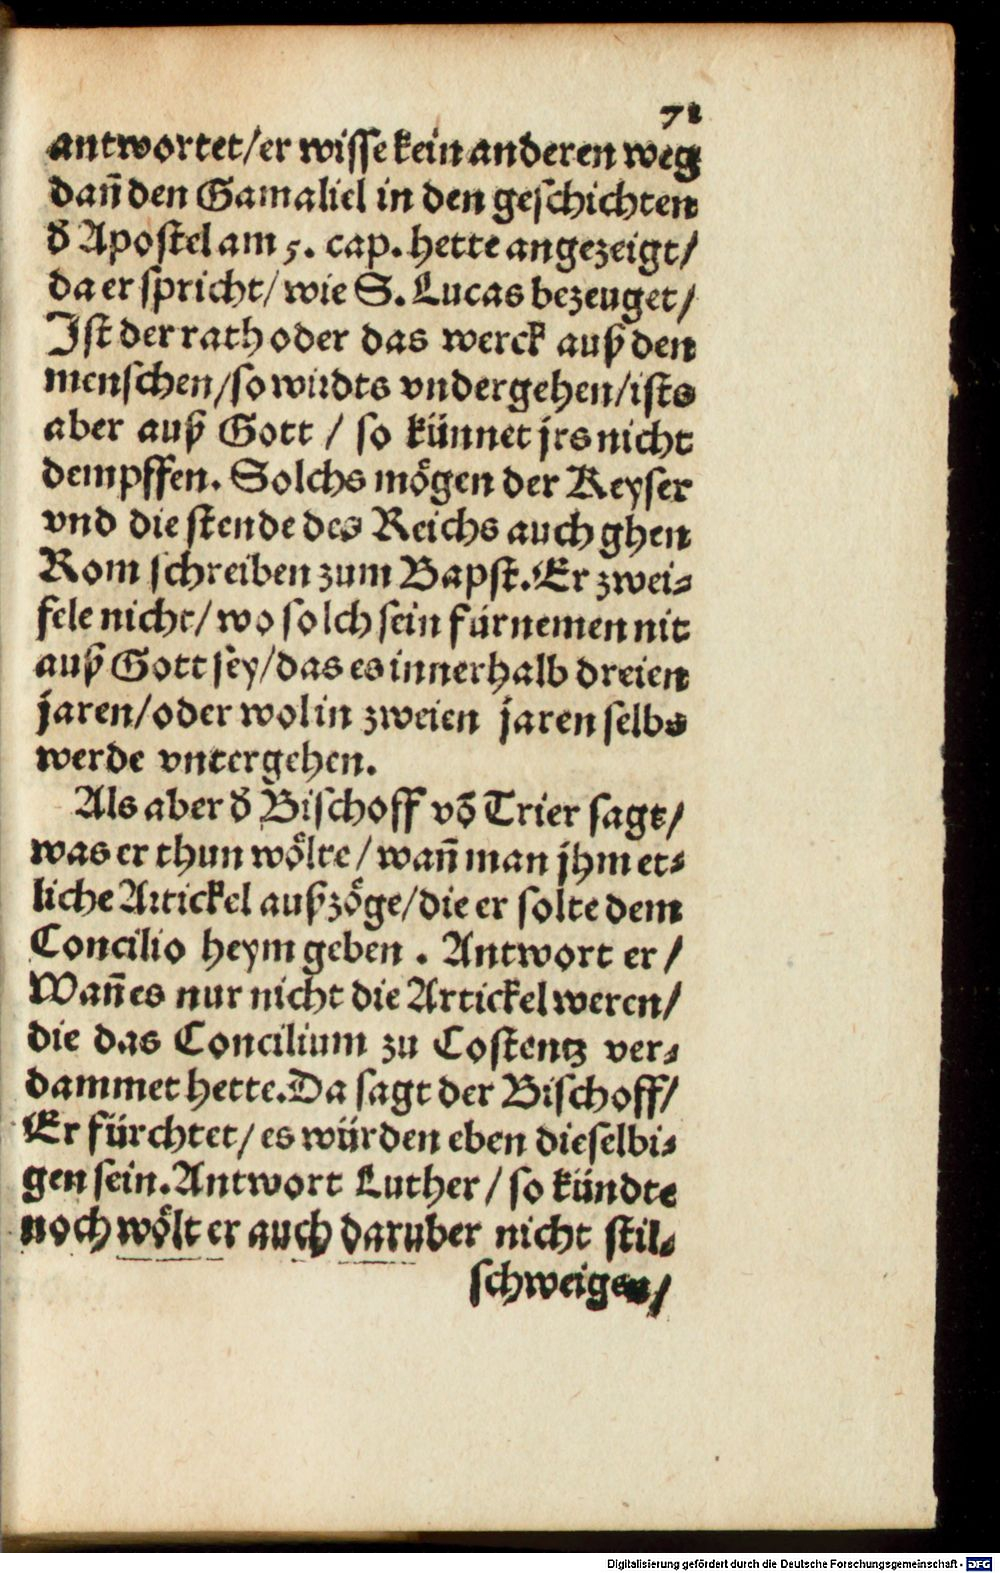 71
antwortet/er wisse kein anderen weg
dañ den Gamaliel in den geschichten
d̄ Apostel am 5. cap. hette angezeigt/
da er spricht/ wie S. Lucas bezeuget/
Ist der rath oder das werck auß den
menschen/so wirdts vndergehen/ists
aber auß Gott / so künnet jrs nicht
dempffen. Solchs mo̊gen der Keyser
vnd die stende des Reichs auch ghen
Rom schreiben zum Bapst. Er zwei⸗
fele nicht/ wo solch sein fürnemen nit
auß Gott sey/das es innerhalb dreien
jaren/oder wol in zweien jaren selbs
werde vntergehen.
Als aber d̄ Bischoff võ Trier sagt/
was er thun wo̊lte/ wañ man jhm et⸗
liche Artickel außzo̊ge/die er solte dem
Concilio heym geben . Antwort er/
Wañ es nur nicht die Artickel weren/
die das Concilium zu Costentz ver⸗
dammet hette. Da sagt der Bischoff/
Er fürchtet/ es würden eben dieselbi⸗
gen sein. Antwort Luther/ so kündte
noch wo̊lt er auch daruber nicht stil⸗
schweigen/
Digitalisierung gefördert durch die Deutsche Forschungsgemeinschaft - DFG